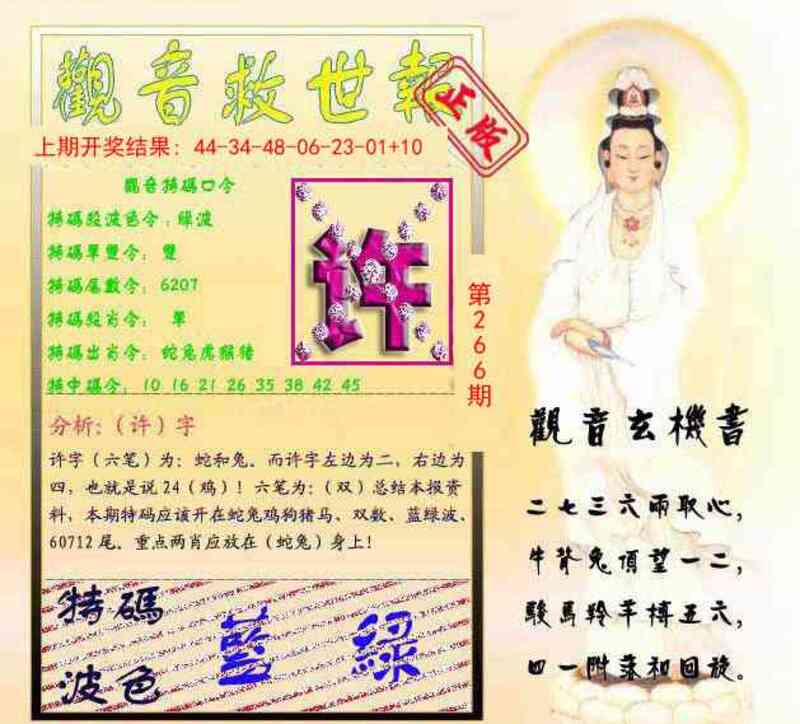 觀音救世報
正版
上期开奖结果：44-34-48-06-23-01+10
觀音特碼口令
特碼段波色令：綠波
特碼單雙令：雙
特碼尾數令：6207
特碼段肖令：單
特碼出肖令：蛇兔虎猴豬
特中碼令：10 16 21 26 35 38 42 45
许
第266期
分析：（许）字
许字（六笔）为：蛇和兔．而许字左边为二，右边为
四，也就是说24（鸡）！六笔为：（双）总结本报资
料，本期特码应该开在蛇兔鸡狗猪马、双数、蓝绿波、
60712尾．重点两肖应放在（蛇兔）身上！
特碼
波色
藍 綠
觀音玄機書
二七三六兩取心，
牛背兔頂望一二，
駿馬羚羊搏五六，
四一附落和回旋。